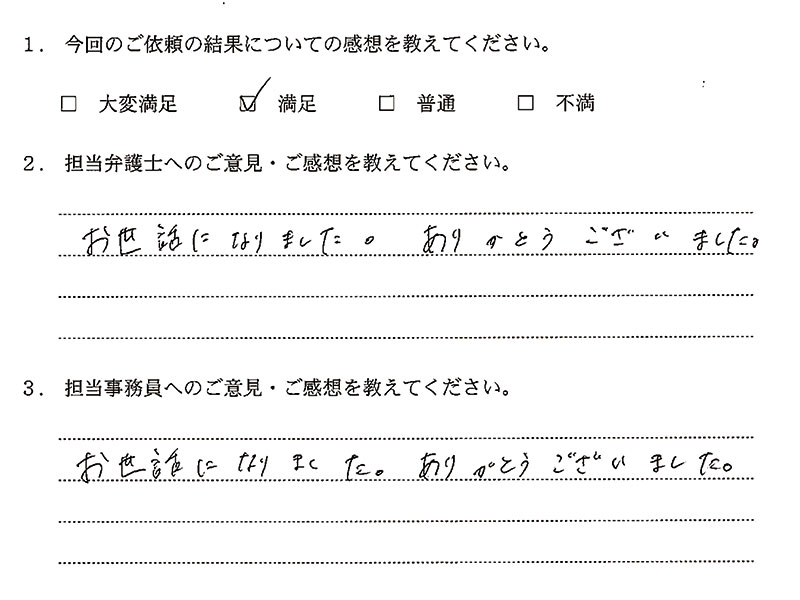 1. 今回のご依頼の結果についての感想を教えてください。
□ 大変満足 ☑ 満足 □ 普通 □ 不満
2. 担当弁護士へのご意見・ご感想を教えてください。
お世話になりました。ありがとうございました。
3. 担当事務員へのご意見・ご感想を教えてください。
お世話になりました。ありがとうございました。